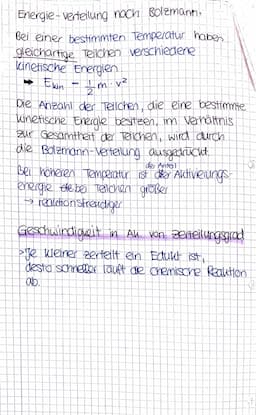 Energie-verteilung nach Bolzmann.
Bei einer bestimmten Temperatur haben
gleichartige Teilchen verschiedene
kinetische Energien.
→ Ekin = 1/2 m · v²
Die Anzahl der Teilchen, die eine bestimmte
kinetische Energie besitzen, im Verhältnis
zur Gesamtheit der Teilchen, wird durch
die Bolzmann-Verteilung ausgedrückt.
Bei höheren Temperatur ist der Anteil der Aktivierungs-
energie bei Teilchen größer
→ reaktionsfreudiger
Geschwindigkeit in Ah. von Zerteilungsgrad
>Je kleiner zerteilt ein Edukt ist,
desto schneller läuft die chemische Reaktion
ab.